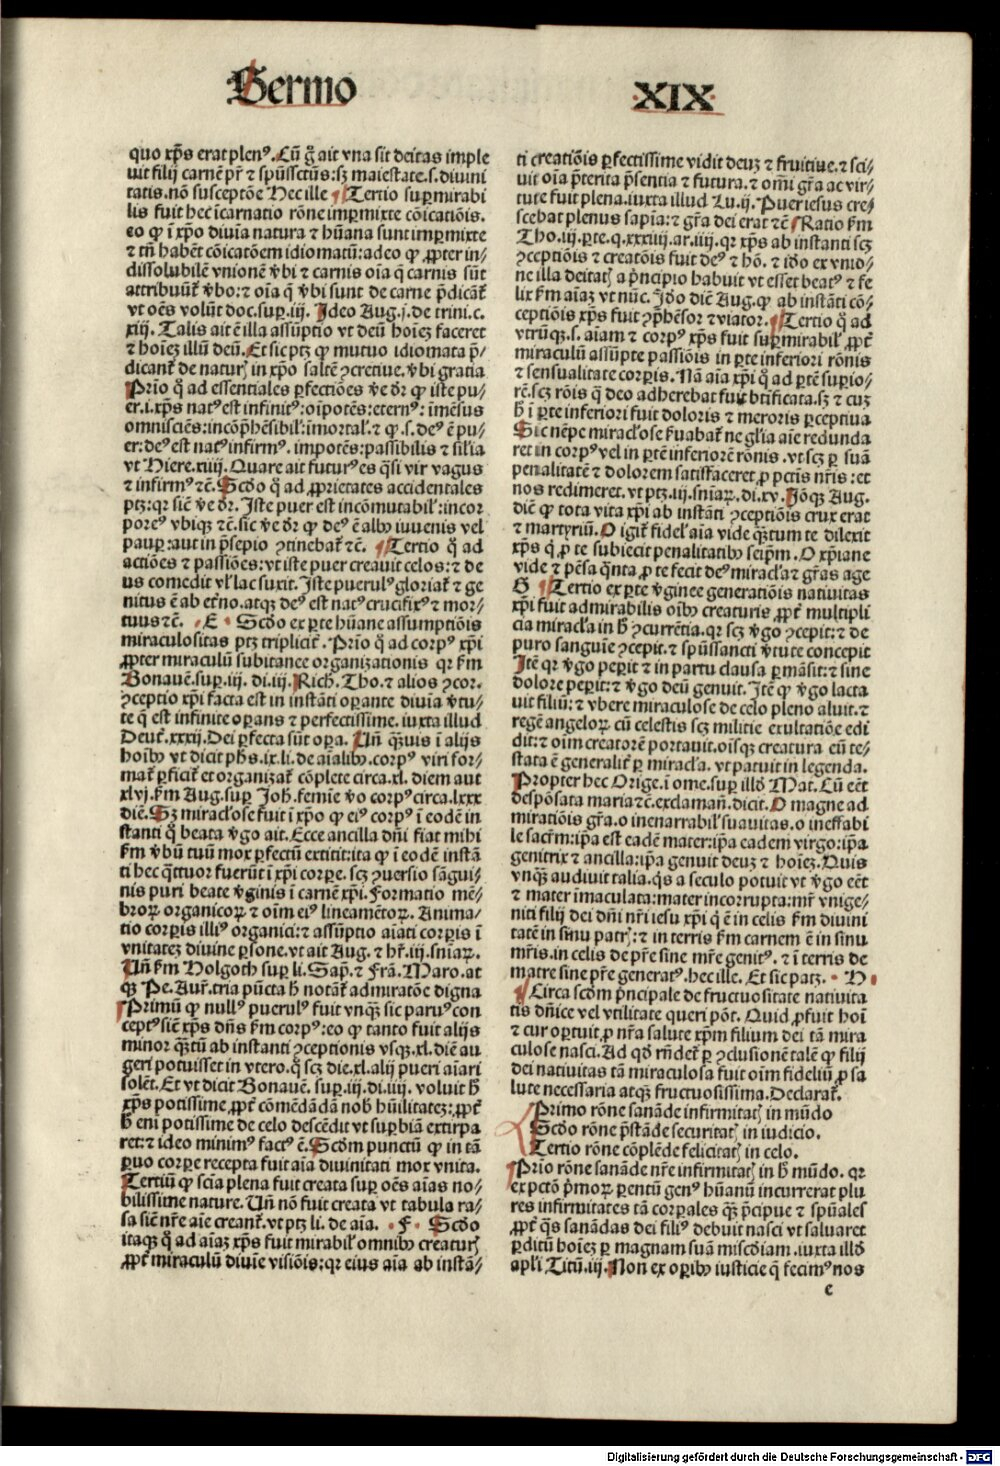 Sermo XIX
quo xp̄s erat plenꝰ. Cū g̊ ait vna sit deitas imple
uit filij carnē pr̄ꝭ ⁊ sp̄ussctūs: sꝫ maiestate. s. diuini
tatis. nō susceptōe Hec ille ¶ Tertio suꝑmirabi
lis fuit hec īcarnatio rōne imꝑmixte cōicatiōis.
eo ꝙ ī xp̄o diuīa natura ⁊ hūana sunt imꝑmixte
⁊ tn̄ habēt cōicatōem idiomatū: adeo ꝙ ꝓpter in⸗
dissolubilē vnionē v̄bi ⁊ carnis oīa q̄ carnis sūt
attribuūt̄ v̄bo: ⁊ oīa q̄ v̄bi sunt de carne p̄dicāt̄
vt oēs volūt doc. suꝑ. iij. Ideo Aug. j. de trini. c.
xiij. Talis aīt ē illa assūptio vt deū hoīeꝫ faceret
⁊ hoīeꝫ illū deū. Et sic ptꝫ ꝙ mutuo idiomata p̄⸗
dicant̄ de naturꝭ in xp̄o saltē ꝯcretiue. v̄bi gratia
Prīo q̊ ad essentiales ꝑfectiōes v̄e dr̄ ꝙ iste pu⸗
er. i. xp̄s natꝰ est infinitꝰ: oīpotēs: eternꝰ: īmēsus
omnisciēs: incōp̄hēsibil̓: īmortal̓. ⁊ ꝙ. s. deꝰ ē pu⸗
er: deꝰ est natꝰ infirmꝰ. impotēs: passibilis ⁊ sil̓ia
vt Hiere. xiiij. Quare ait futurꝰ es q̄si vir vagus
⁊ infirmꝰ ⁊c̄. Scd̓o q̊ ad ꝓprietates accidentales
ptꝫ: qꝛ sic̄ v̄e dr̄. Iste puer est incōmutabil̓: incor
poreꝰ vbiqꝫ ⁊c̄. sic̄ v̄e dr̄ ꝙ deꝰ ē albꝰ iuuenis vel
pauꝑ: aut in p̄sepio ꝯtinebat̄ ⁊c̄. ¶ Tertio q̊ ad
actiōes ⁊ passiōes: vt iste puer creauit celos: ⁊ de
us comedit vl̓ lac suxit. Iste puerulꝰ gloriat̄ ⁊ ge
nitus ē ab et̓no. atqꝫ deꝰ est natꝰ crucifixꝰ ⁊ mor⸗
tuus ⁊c̄. · E · Scd̓o ex ꝑte hūane assumptiōis
miraculositas ptꝫ triplicit̄. Prīo q̊ ad corpꝰ xp̄i
ꝓpter miraculū subitanee organizationis qꝛ fm̄
Bonauē. suꝑ. iij. di. iij. Rich. Tho. ⁊ alios ꝯcor.
ꝯceptio xp̄i facta est in instāti oꝑante diuīa v̄tu⸗
te q̄ est infinite oꝑans ⁊ perfectissime. iuxta illud
Deut̄. xxxij. Dei ꝑfecta sūt oꝑa. Un̄ q̄ꝫuis ī alijs
hoībꝰ vt dicit ph̄s. ix. li. de aīalibꝰ. corpꝰ viri for⸗
mat̄ ꝑficit̄ et organizat̄ cōplete circa. xl. diem aut
xlvj. fm̄ Aug. suꝑ Joh̄. femīe v̄o corpꝰ circa. lxxx
diē. Sꝫ miracl̓ose fuit ī xp̄o ꝙ eiꝰ corpꝰ ī eodē in
stanti q̊ beata v̄go ait. Ecce ancilla dn̄i fiat mihi
fm̄ v̄bū tuū mox ꝑfectū extitit: ita ꝙ ī eodē instā
ti hec q̄ttuor fuerūt ī xp̄i corꝑe. scꝫ ꝯuersio sāgui⸗
nis puri beate v̄ginis ī carnē xp̄i. Formatio mē⸗
broꝝ organicoꝝ ⁊ oīm eiꝰ lineamētoꝝ. Anima⸗
tio corꝑis illiꝰ organici: ⁊ assūptio aīati corꝑis ī
vnitateꝫ diuine ꝑsone. vt ait Aug. ⁊ hr̄. iij. sniaꝝ.
Un̄ fm̄ Holgoth suꝑ li. Sap̄. ⁊ Frā. Maro. at
qꝫ Pe. Aur̄. tria pūcta h̄ notāt̄ admiratōe digna
¶ Primū ꝙ nullꝰ puerulꝰ fuit vnqꝫ sic paruꝰ con
ceptꝰ sic̄ xp̄s dn̄s fm̄ corpꝰ: eo ꝙ tanto fuit alijs
minor q̄ꝫtū ab instanti ꝯceptionis vsqꝫ. xl. diē au
geri potuisset in vtero. q̊ scꝫ die. xl. alij pueri aīari
solēt. Et vt dicit Bonauē. suꝑ. iij. di. iiij. voluit h̄
xp̄s potissime ꝓpt̄ cōmēdādā nob̓ hūilitateꝫ: ꝓpt̄
h̄ eni potissime de celo descēdit vt suꝑbiā extirpa
ret: ⁊ ideo minimꝰ factꝰ ē. Scd̓m punctū ꝙ in tā
ꝑuo corꝑe recepta fuit aīa diuinitati mox vnita.
Tertiū ꝙ scīa plena fuit creata suꝑ oēs aīas no⸗
bilissime nature. Un̄ nō fuit creata vt tabula ra⸗
sa sic̄ nr̄e aīe creant̄. vt ptꝫ li. de aīa. · F · Scd̓o
itaqꝫ q̊ ad aīaꝫ xp̄s fuit mirabil̓ omnibꝰ creaturꝭ
ꝓpt̄ miraculū diuīe visiōis: qꝛ eius aīa ab instā⸗
ti creatiōis ꝑfectissime vidit deuꝫ ⁊ fruitiue. ⁊ sci⸗
uit oīa p̄terita p̄sentia ⁊ futura. ⁊ om̄i gr̄a ac vir⸗
tute fuit plena. iuxta illud Lu. ij. Puer iesus cre⸗
scebat plenus sapīa: ⁊ gr̄a dei erat ⁊c̄ ¶ Ratio fm̄
Tho. iij. ꝑte. q. xxxiiij. ar. iiij. qꝛ xp̄s ab instanti scꝫ
ꝯceptiōis ⁊ creatōis fuit deꝰ ⁊ hō. ⁊ id̓o ex vnio⸗
ne illa deitatꝭ a p̄ncipio habuit vt esset beatꝰ ⁊ fe
lix fm̄ aīaꝫ vt nūc. Id̓o dic̄ Aug. ꝙ ab instāti cō⸗
ceptiōis xp̄s fuit ꝯp̄hēsor ⁊ viator. ¶ Tertio q̊ ad
vtrūqꝫ. s. aīam ⁊ corpꝰ xp̄s fuit suꝑmirabil̓ ꝓpt̄
miraculū assūpte passiōis in ꝑte inferiori rōnis
⁊ sensualitate corꝑis. Nā aīa xp̄i q̊ ad ꝑtē suꝑio⸗
rē. scꝫ rōis q̊ deo adherebat fuit btificata. sꝫ ⁊ cuꝫ
h̄ ī ꝑte inferiori fuit doloris ⁊ meroris ꝑceptiua
Sic nēpe miracl̓ose ẜuabat̄ ne gl̓ia aīe redunda
ret in corpꝰ vel in ꝑtē inferiorē rōnis. vt scꝫ ꝑ suā
penalitatē ⁊ dolorem satisfaceret ꝓ pctīs nr̄is: et
nos redimeret. vt ptꝫ. iij. sniaꝝ. di. xv. Iōqꝫ Aug.
dic̄ ꝙ tota vita xp̄i ab instāti ꝯceptiōis crux erat
⁊ martyriū. O igit̄ fidel̓ aīa vide q̄ꝫtum te dilexit
xp̄s q̄ ꝓ te subiecit penalitatibꝰ seip̄m. O xp̄iane
vide ⁊ pēsa q̄nta ꝓ te fecit deꝰ miracl̓a ⁊ gr̄as age
G ¶ Tertio ex ꝑte v̄ginee generatiōis natiuitas
xp̄i fuit admirabilis oībꝰ creaturis ꝓpt̄ multipli
cia miracl̓a in h̄ ꝯcurrētia. qꝛ scꝫ v̄go ꝯcepit: ⁊ de
puro sanguīe ꝯcepit. ⁊ sp̄ussancti v̄tute concepit
Itē qꝛ v̄go peꝑit ⁊ in partu clausa ꝑmāsit: ⁊ sine
dolore peꝑit: ⁊ v̄go deū genuit. Itē ꝙ v̄go lacta
uit filiū: ⁊ vbere miraculose de celo pleno aluit. ⁊
regē angeloꝝ cū celestis scꝫ militie exultatiōe edi
dit: ⁊ oīm creatorē portauit. oīsqꝫ creatura cū te⸗
stata ē generalit̄ ꝑ miracl̓a. vt patuit in legenda.
Propter hec Orige. ī ome. suꝑ illd̓ Mat. Cū eēt
despōsata maria ⁊c̄. exclaman̄. dicit. O magne ad
miratiōis gr̄a. o inenarrabil̓ suauitas. o ineffabi
le sacrm̄: ip̄a est eadē mater: ip̄a eadem virgo: ip̄a
genitrix ⁊ ancilla: ip̄a genuit deuꝫ ⁊ hoīeꝫ. Quis
vnqꝫ audiuit talia. q̄s a seculo potuit vt v̄go eēt
⁊ mater īmaculata: mater incorrupta: mr̄ vnige⸗
niti filij dei dn̄i nr̄i iesu xp̄i q̄ ē in celis fm̄ diuini
tatē in sinu patrꝭ: ⁊ in terris fm̄ carnem ē in sinu
mr̄is. in celis de pr̄e sine mr̄e genitꝰ. ⁊ ī terris de
matre sine pr̄e generatꝰ. hec ille. Et sic patꝫ. · H ·
¶ Circa scd̓m p̄ncipale de fructuositate natiuita
tis dn̄ice vel vtilitate queri pōt. Quid ꝓfuit hoī
⁊ cur oꝑtuit ꝓ nr̄a salute xp̄m filium dei tā mira
culose nasci. Ad qd̓ rn̄det̄ ꝑ ꝯclusionē talē ꝙ filij
dei natiuitas tā miraculosa fuit oīm fideliū ꝓ sa
lute necessaria atqꝫ fructuosissima. Declarat̄.
Primo rōne sanāde infirmitatꝭ in mūdo
Scd̓o rōne p̄stāde securitatꝭ in iudicio.
Tertio rōne cōplēde felicitatꝭ in celo.
¶ Prīo rōne sanāde nr̄e infirmitatꝭ in h̄ mūdo. qꝛ
ex pctō p̄moꝝ ꝑentū genꝰ hūanū incurrerat plu
res infirmitates tā corꝑales q̄ꝫ p̄cipue ⁊ sp̄uāles
ꝓpt̄ q̄s sanādas dei filiꝰ debuit nasci vt saluaret
ꝑditū hoīeꝫ ꝑ magnam suā misc̄diam. iuxta illd̓
apl̓i Titū. iij. Non ex oꝑibꝰ iusticie q̄ fecimꝰ nos
c
Digitalisierung gefördert durch die Deutsche Forschungsgemeinschaft - DFG